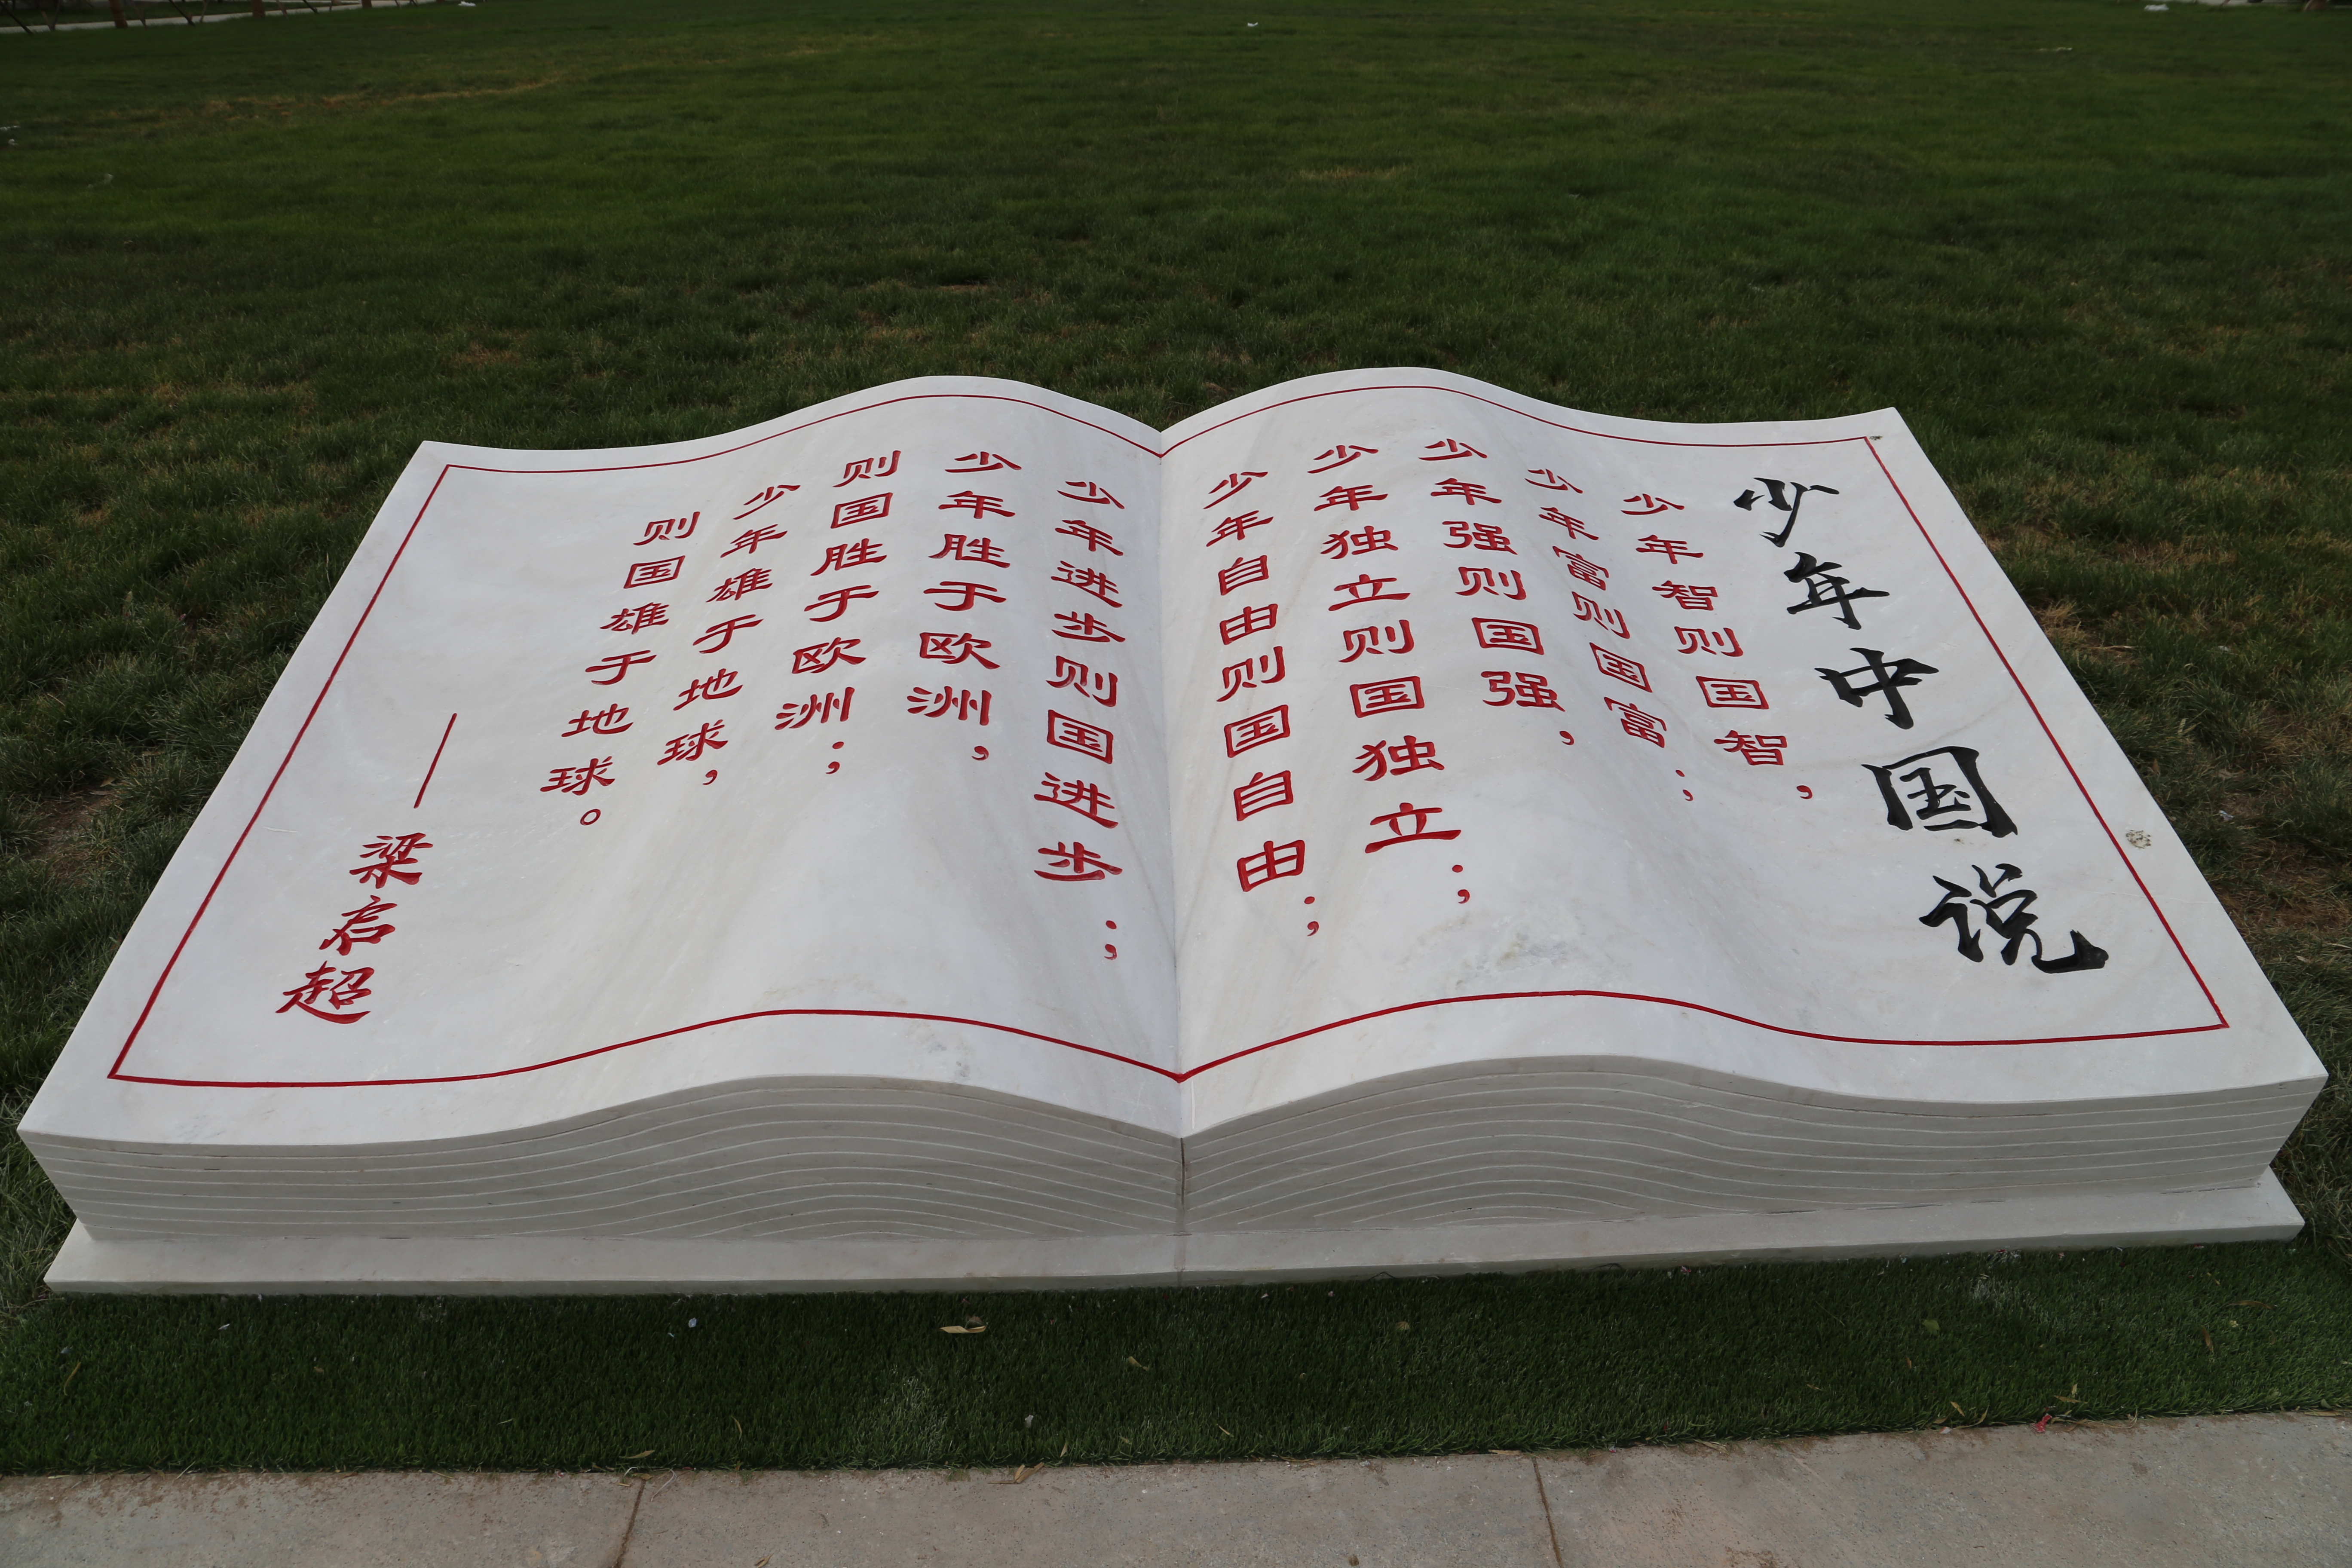 少年中国说
少年智则国智，
少年富则国富；
少年强则国强，
少年独立则国独立；
少年自由则国自由；
少年进步则国进步；
少年胜于欧洲，
则国胜于欧洲；
少年雄于地球，
则国雄于地球。
——梁启超